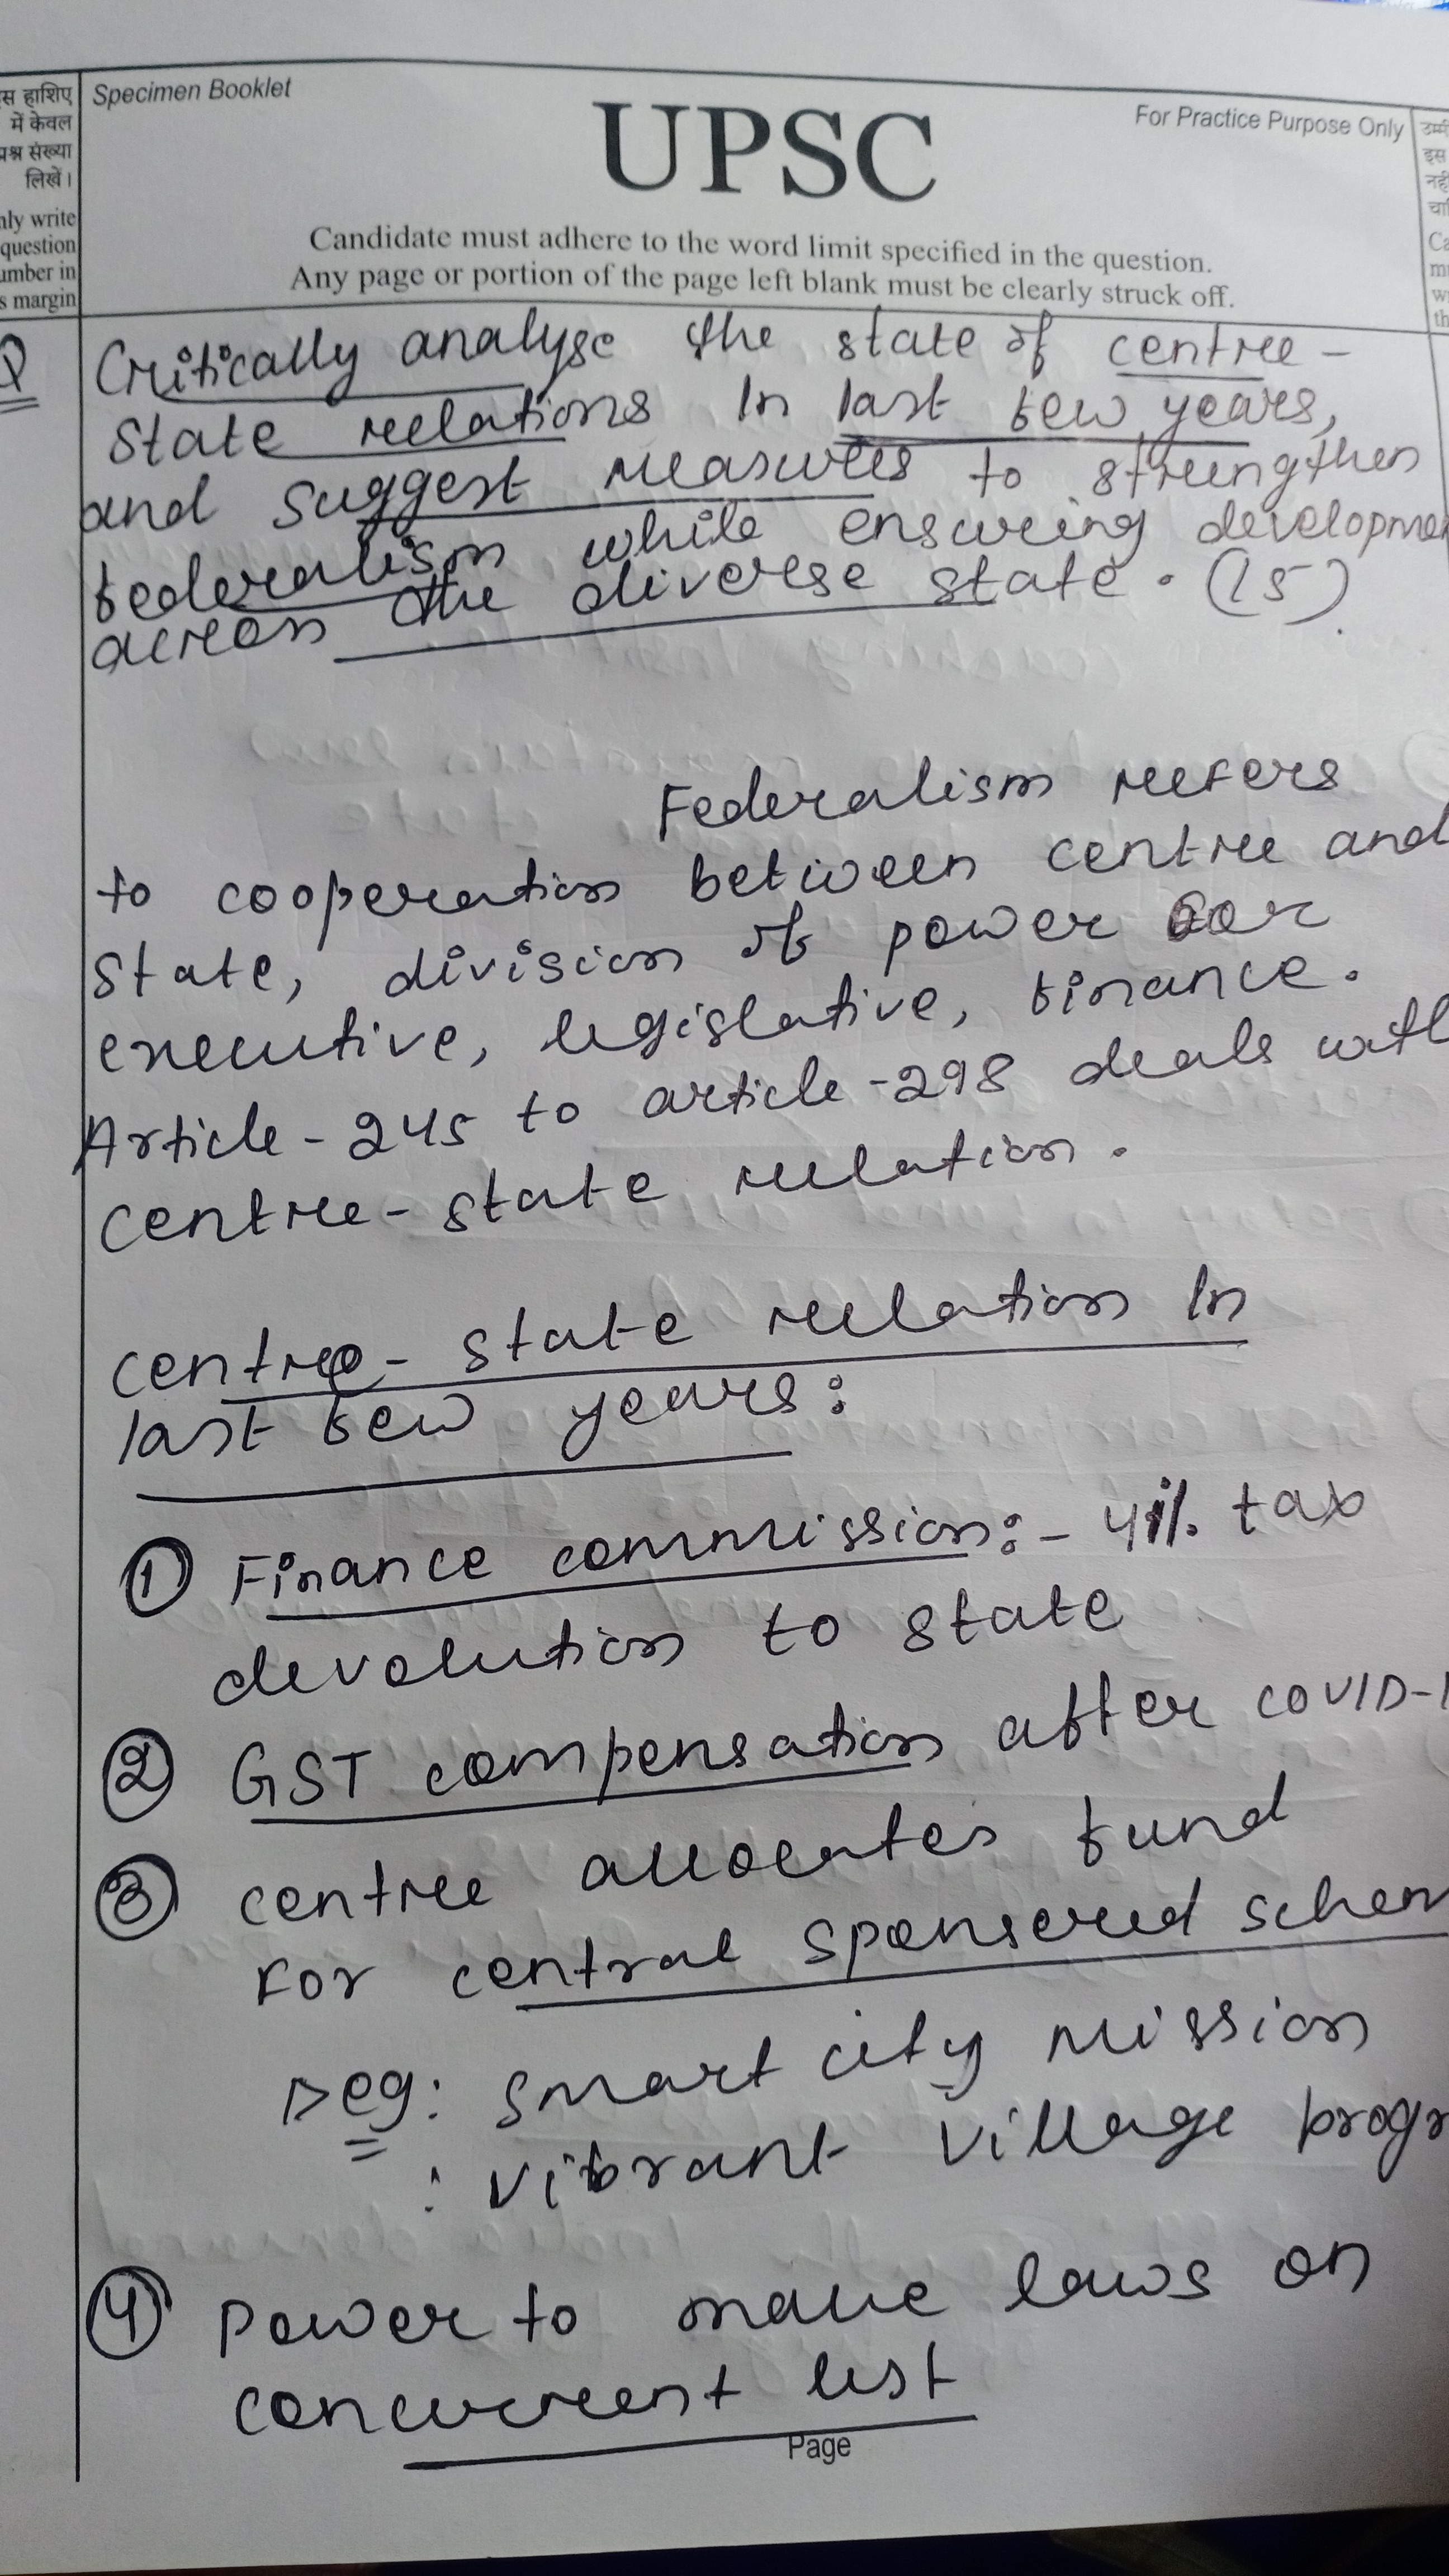 स हाशिए
में केवल
प्रश्न संख्या
लिखें।
nly write
question
umber in
s margin
Specimen Booklet
UPSC
For Practice Purpose Only
Candidate must adhere to the word limit specified in the question.
Any page or portion of the page left blank must be clearly struck off.
उम्मी
इस
नहीं
चा
Ca
m
w
th
Q
Critically analyse the state of centre-
state relations in last few years,
and suggest measures to strengthen
federalism while ensuring developmen
across the diverse state. (15)
Federalism refers
to cooperation between centre and
state, division of power for
executive, legislative, finance.
Article-245 to article-298 deals with
centre-state relation.
centre-state relation in
last few years:
① Finance commission:- 41% tax
devolution to state
② GST compensation after COVID-1
③ centre allocates fund
For central sponsered schem
▷ eg: smart city mission
: vibrant village progr
④ power to make laws on
concurrent list
Page